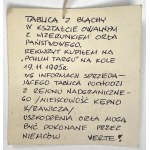 TABLICA Z BLACHY
W KSZTAŁCIE OWALNYM
Z WIZERUNKIEM ORŁA
PAŃSTWOWEGO,
REKWIZYT KUPIŁEM NA
"PCHLIM TARGU" NA KOLE
19.11.1995r.
WG INFORMACJI SPRZEDA-
JĄCEGO TABLICA POCHODZI
Z REJONU NADGRANICZNE-
GO /MIEJSCOWOŚĆ KĘPNO
K/RAWICZA/
USZKODZENIA ORŁA MOGĄ
BYĆ DOKONANE PRZEZ
NIEMCÓW VERTE!